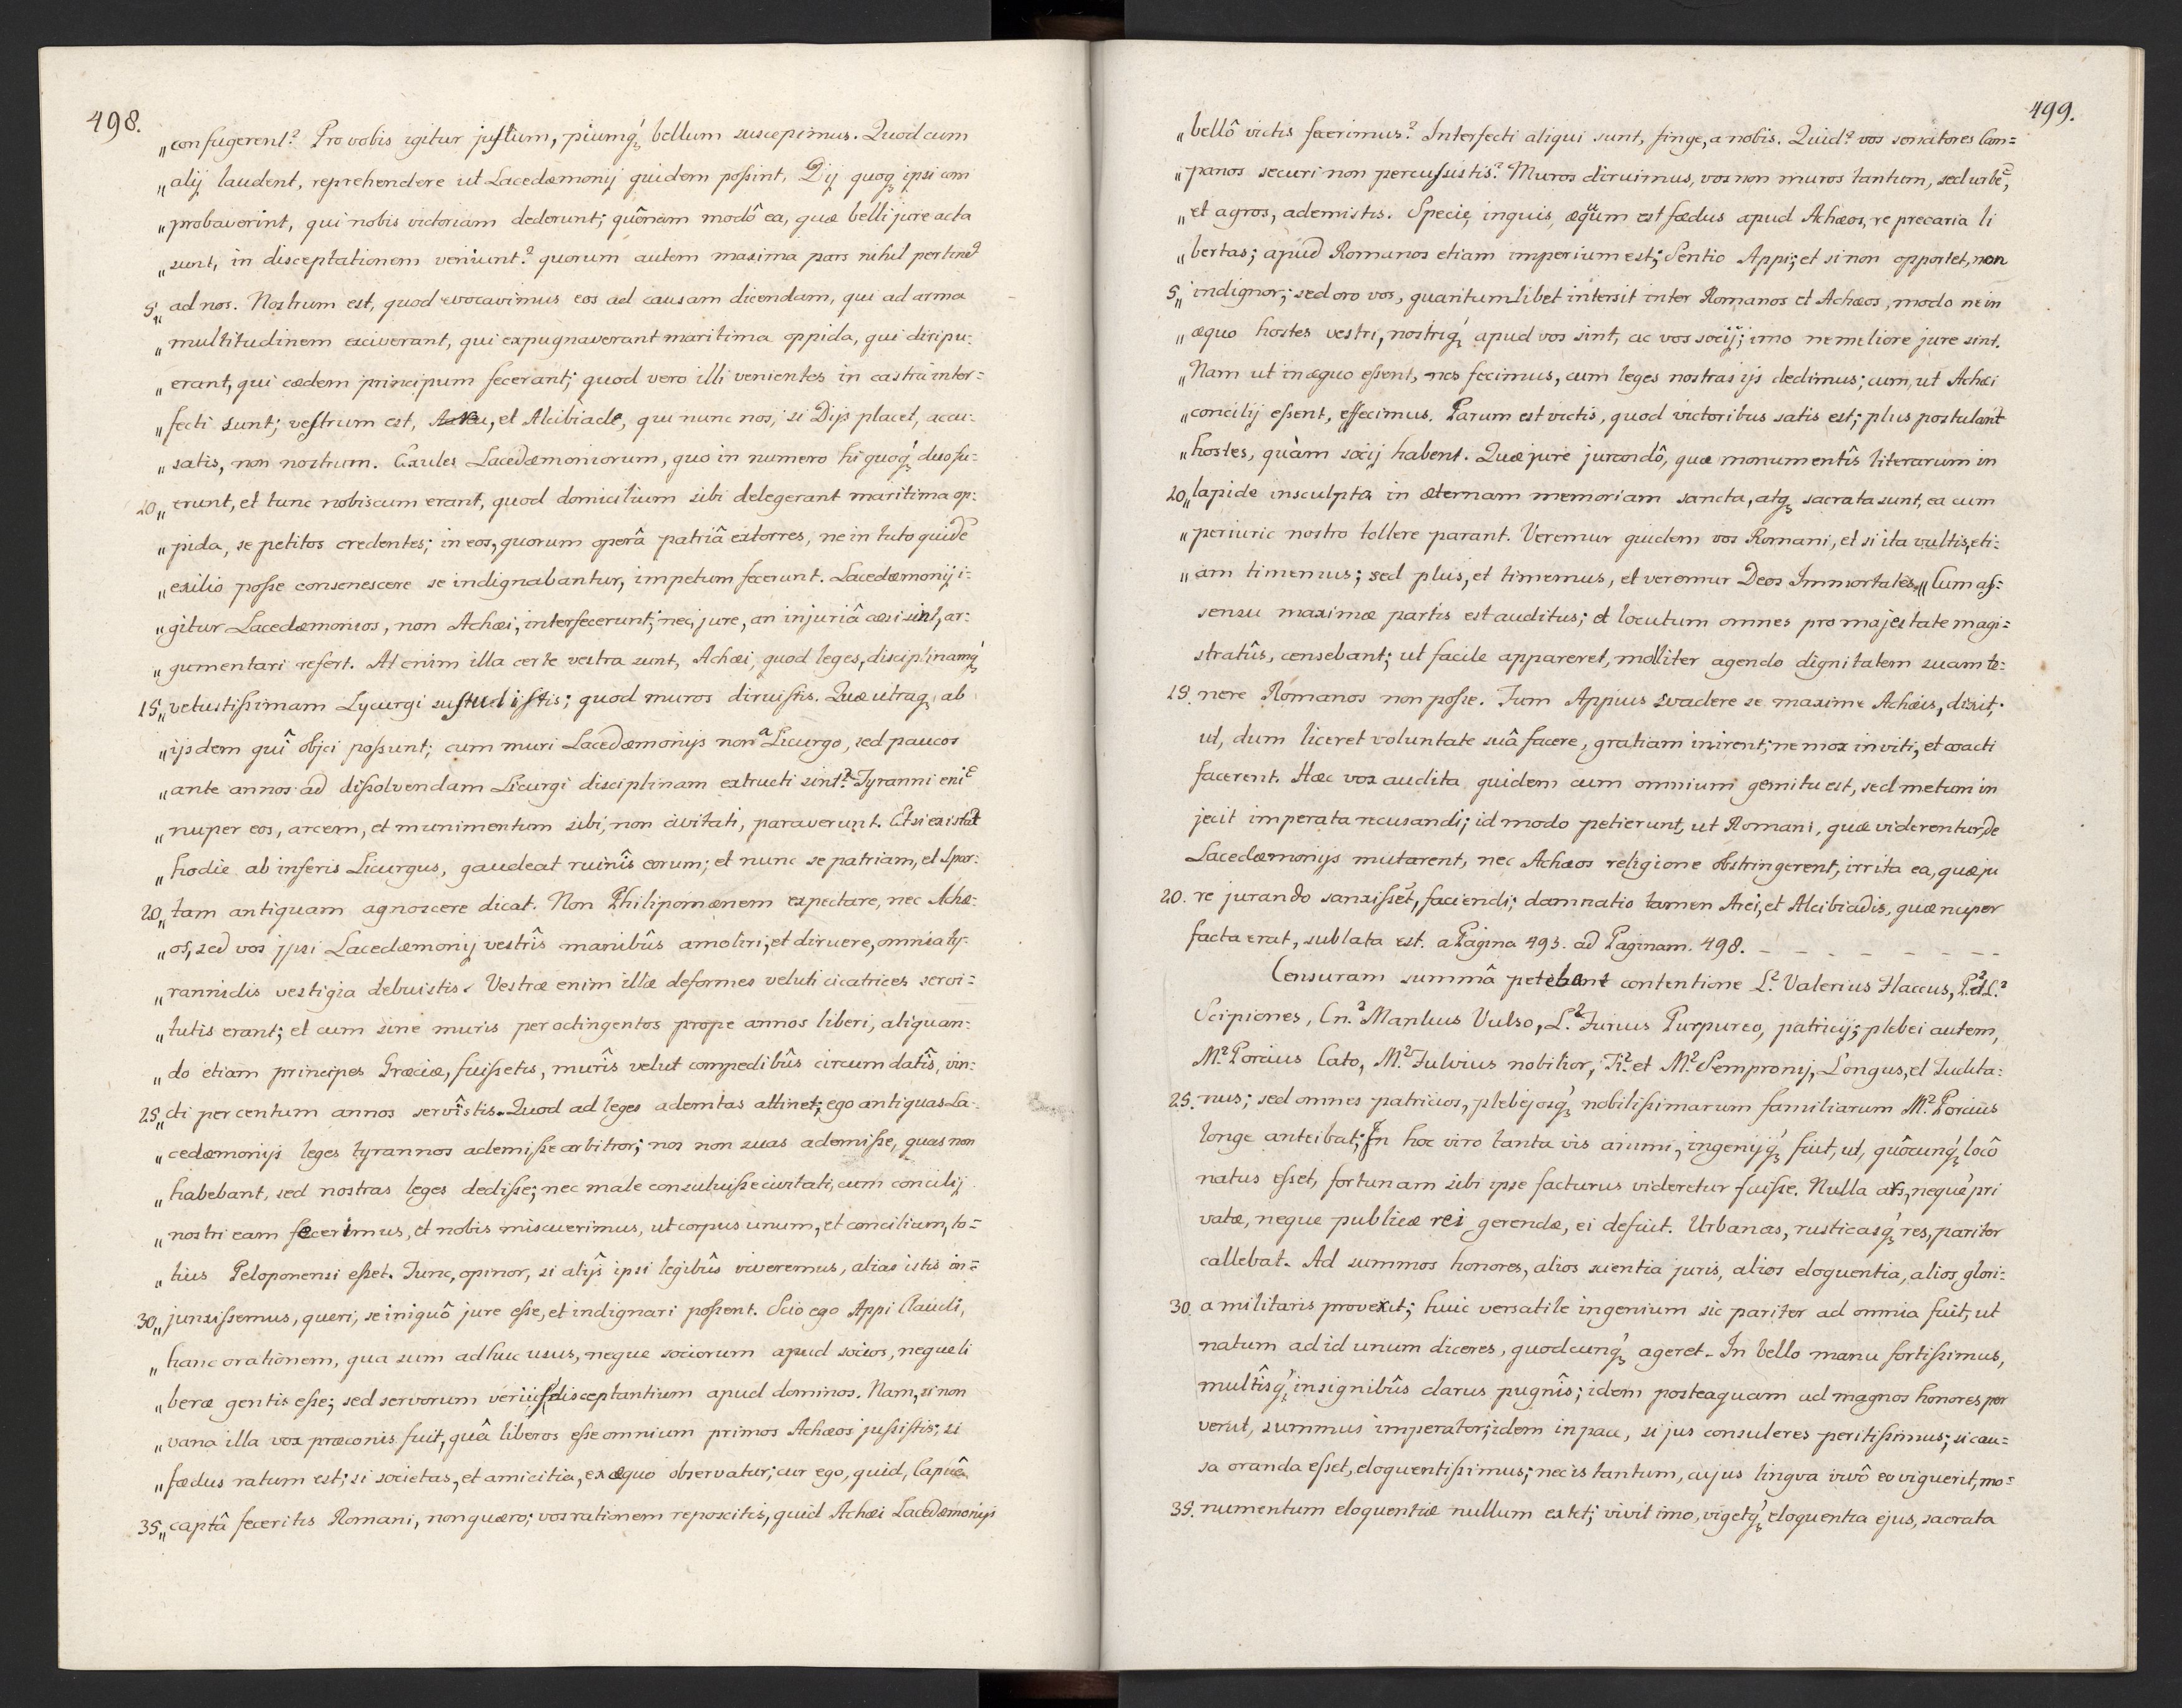 498.
„confugerent? Pro vobis igitur justum, piumq́ꝫ bellum suscepimus. Quod cum
„alij laudent, reprehendere ut Lacedæmonij quidem poßint, Dij quoqꝫ ipsi com
„probaverint, qui nobis victoriam dederunt; quônam modô ea, quæ belli jure acta
„sunt, in disceptationem veniunt? quorum autem maxima pars nihil pertinet
5„ad nos. Nostrum est, quod evocavimus eos ad causam dicendam, qui ad arma
„multitudinem exciverant, qui expugnaverant maritima oppida, qui diripu:
„erant, qui cædem principum fecerant; quod vero illi venientes in castra inter:
„fecti sunt; vestrum est, et Alcibiade, qui nunc nos, si Dijs placet, accu:
„satis, non nostrum. Exules Lacedæmoniorum, quo in numero hi quoq́ꝫ duo fu:
10„erunt, et tunc nobiscum erant, quod domicilium sibi delegerant maritima op:
„pida, se petitos credentes; in eos, quorum operâ patriâ extorres, ne in tuto quidē
„exilio poße consenescere se indignabantur, impetum fecerunt. Lacedæmonij i:
„gitur Lacedæmonios, non Achæi, interfecerunt; nec, jure, an injuriâ cæsi sint, ar:
„gumentari refert. At enim illa certe vestra sunt, Achæi, quod leges, disciplinamq́ꝫ
15„vetustißimam Lycurgi sustulistis; quod muros diruistis. Quæ utraqꝫ ab
„ijsdem quî objci poßunt; cum muri Lacedæmonijs non a Licurgo, sed paucos
„ante annos ad dißolvendam Licurgi disciplinam extructi sint? Tyranni enī
„nuper eos, arcem, et munimentum sibi, non civitati, paraverunt. Et si existat
„hodie ab inferis Licurgus, gaudeat ruinîs eorum; et nunc se patriam, et Spar:
20„tam antiquam agnoscere dicat. Non Philipomænem expectare, nec Achæ:
„os, sed vos jpsi Lacedæmonij vestrîs manibûs amoliri, et diruere, omnia ty:
„rannidis vestigia debuistis. Vestræ enim illæ deformes veluti cicatrices servi=
„tutis erant; et cum sine muris per octingentos prope annos liberi, aliquan:
„do etiam principes Græciæ, fuißetis, murîs velut compedibûs circumdatîs, vin:
25„cti per centum annos servîstis. Quod ad leges ademtas attinet; ego antiquas La:
„cedæmonijs leges tyrannos ademiße arbitror; nos non suas ademiße, quas non
„habebant, sed nostras leges dediße; nec male consuluiße civitati, cum concilij
„nostri eam fecerimus, et nobis miscuerimus, ut corpus unum, et concilium, to=
„tius Peloponensi eßet. Tunc, opinor, si alijs ipsi legibûs viveremus, alias istis in=
30„junxißemus, queri, se iniquô jure eße, et indignari poßent. Scio ego Appi Claudi,
„hanc orationem, qua sum adhuc usus, neque sociorum apud socios, neque li
„beræ gentis eße; sed servorum veriùs disceptantium apud dominos. Nam, si non
„vana illa vox præconis fuit, quâ liberos eße omnium primos Achæos jußistis; si
„fædus ratum est; si societas, et amicitia, ex æquo observatur; cur ego, quid, Capuâ
35„captâ feceritis Romani, non quæro; vos rationem reposcitis, quid Achæi Lacedæmonijs
499.
„bellô victis fecerimus? Interfecti aliqui sunt, finge, a nobis. Quid? vos senatores Cam=
„panos securi non percußistis? Muros diruimus, vos non muros tantum, sed urbē,
„et agros, ademistis. Specie, inquis, æquum est fædus apud Achæos, re precaria li
„bertas; apud Romanos etiam imperium est; Sentio Appi; et si non opportet, non
5„indignor; sed oro vos, quantumlibet intersit inter Romanos et Achæos, modo ne in
„æquo hostes vestri, nostriq́ꝫ apud vos sint, ac vos socij; imo ne meliore jure sint.
„Nam ut in æquo eßent, nos fecimus, cum leges nostras ijs dedimus; cum, ut Achæi
„concilij eßent, effecimus. Parum est victis, quod victoribus satis est; plus postulant
„hostes, quàm socij habent. Quæ jure jurandô, quæ monumentîs literarum in
10„lapide insculptis in æternam memoriam sancta, atqꝫ sacrata sunt, ea cum
„perjurio nostro tollere parant. Veremur quidem vos Romani, et si ita vultis, eti:
„am timemus; sed plus, et timemus, et veremur Deos Immortales„ Cum aß:
sensu maximæ partis est auditus; et locutum omnes pro majestate magi=
stratûs, censebant; ut facile appareret, molliter agendo dignitatem suam te:
15. nere Romanos non poße. Tum Appius suadere se maxime Achæis, dixit;
ut, dum liceret voluntate suâ facere, gratiam inirent; ne mox inviti, et coacti
facerent. Hæc vox audita quidem cum omnium gemitu est, sed metum in
jecit imperata recusandi; id modo petierunt, ut Romani, quæ viderentur, de
Lacedæmonijs mutarent, nec Achæos religione obstringerent, irrita ea, quæ ju
20. re jurando sanxißet, faciendi; damnatio tamen Arei, et Alcibiadis, quæ nuper
facta erat, sublata est. a Pagina 493. ad Paginam. 498. – – – – – – – –
Censuram summâ petebant contentione L? Valerius Flaccus, P? et L?
Scipiones, Cn? Manlius Vulso, L? Furius Purpureo, patricij; plebei autem,
M? Porcius Cato, M? Fulvius nobilior, Ti? et M? Sempronij, Longus, et Tudita:
25. nus; sed omnes patricios, plebejosq́ꝫ nobilißimarum familiarum M? Porcius
longe anteibat; In hoc viro tanta vis animi, ingenijq́ꝫ fuit, ut, quôcunq́ꝫ locô
natus eßet, fortunam sibi ipse facturus videretur fuiße. Nulla ars, neque pri
vatæ, neque publicæ rei gerendæ, ei defuit. Urbanas, rusticasq́ꝫ res, pariter
callebat. Ad summos honores, alios scientia juris, alios eloquentia, alios glori:
30. a militaris provexit; huic versatile ingenium sic pariter ad omnia fuit, ut
natum ad id unum diceres, quodcunq́ꝫ ageret. In bello manu fortißimus,
multîsq́ꝫ insignibûs clarus pugnîs; idem posteaquam ad magnos honores per
venit, summus imperator; idem in pace, si jus consuleres peritißimus; si cau=
sa oranda eßet, eloquentißimus; nec is tantum, cujus lingva vivô eo viguerit, mo=
35. numentum eloquentiæ nullum extet; vivit imo, vigetq́ꝫ eloquentia ejus, sacrata